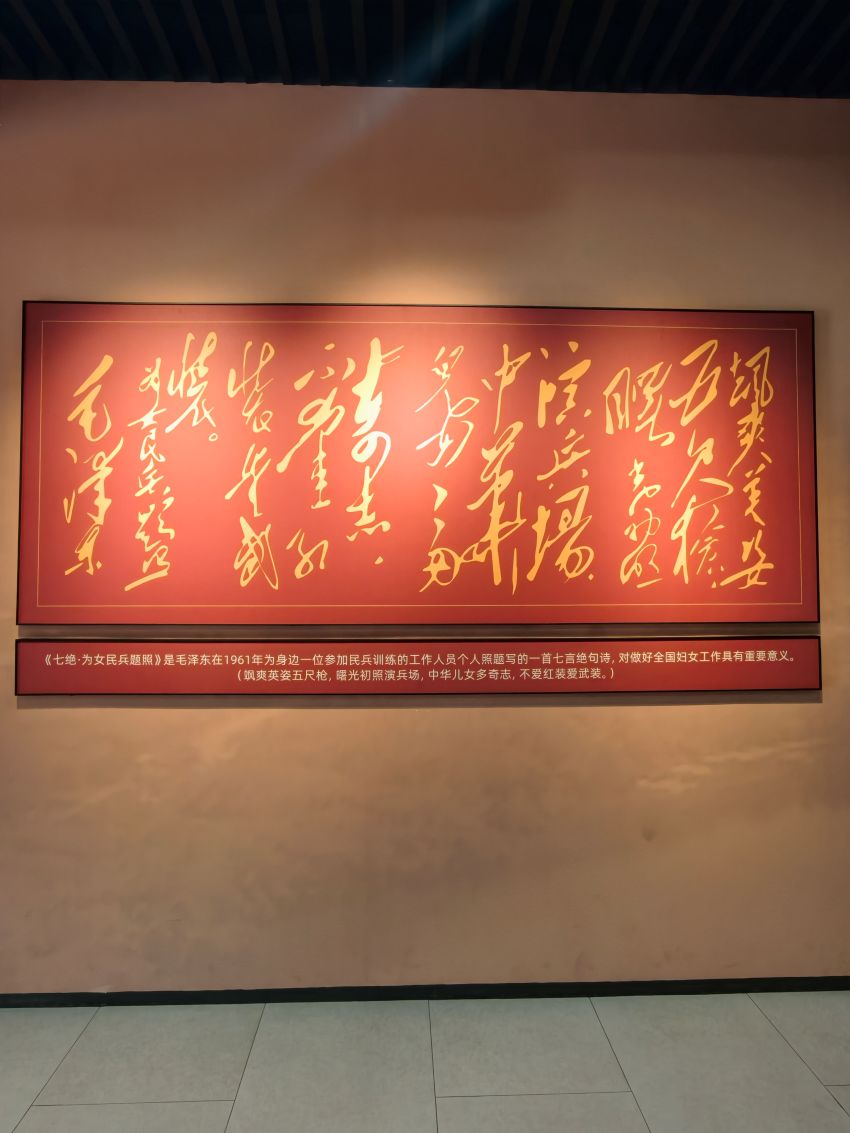 飒爽英姿
五尺枪，
曙光初照
演兵场。
中华
儿女多
奇志，
不爱红
装爱武
装。
为女民兵题照
毛泽东
《七绝·为女民兵题照》是毛泽东在1961年为身边一位参加民兵训练的工作人员个人照题写的一首七言绝句诗，对做好全国妇女工作具有重要意义。
（飒爽英姿五尺枪，曙光初照演兵场，中华儿女多奇志，不爱红装爱武装。）